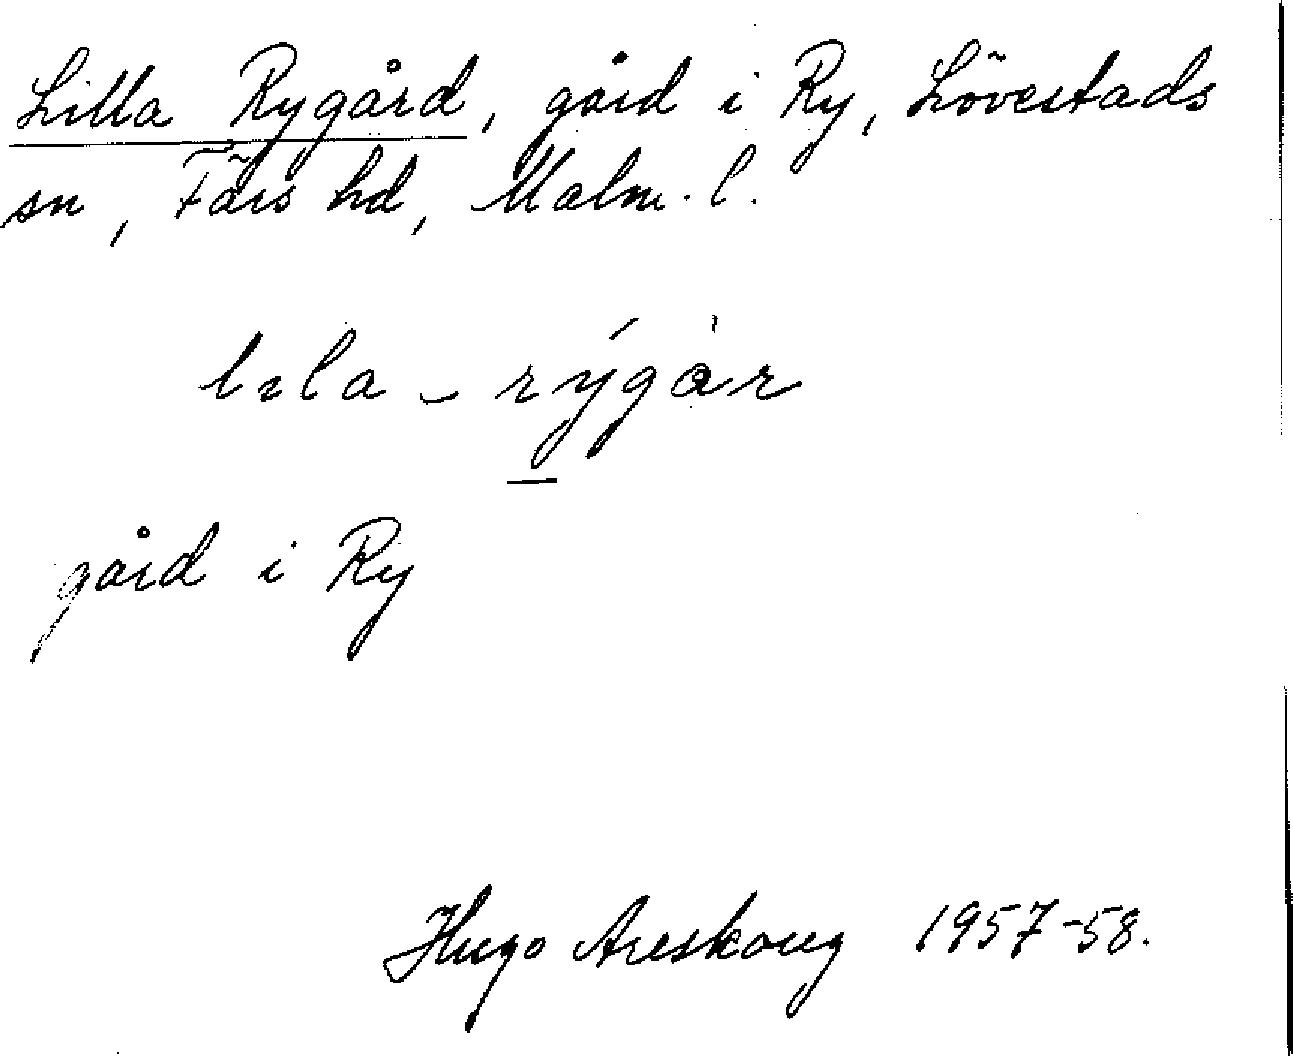 Lilla Rygård, gård i Ry, Lövestads
sn, Färs hd, Malm. l.
lıla - rýgàr
gård i Ry
Hugo Areskoug 1957-58.